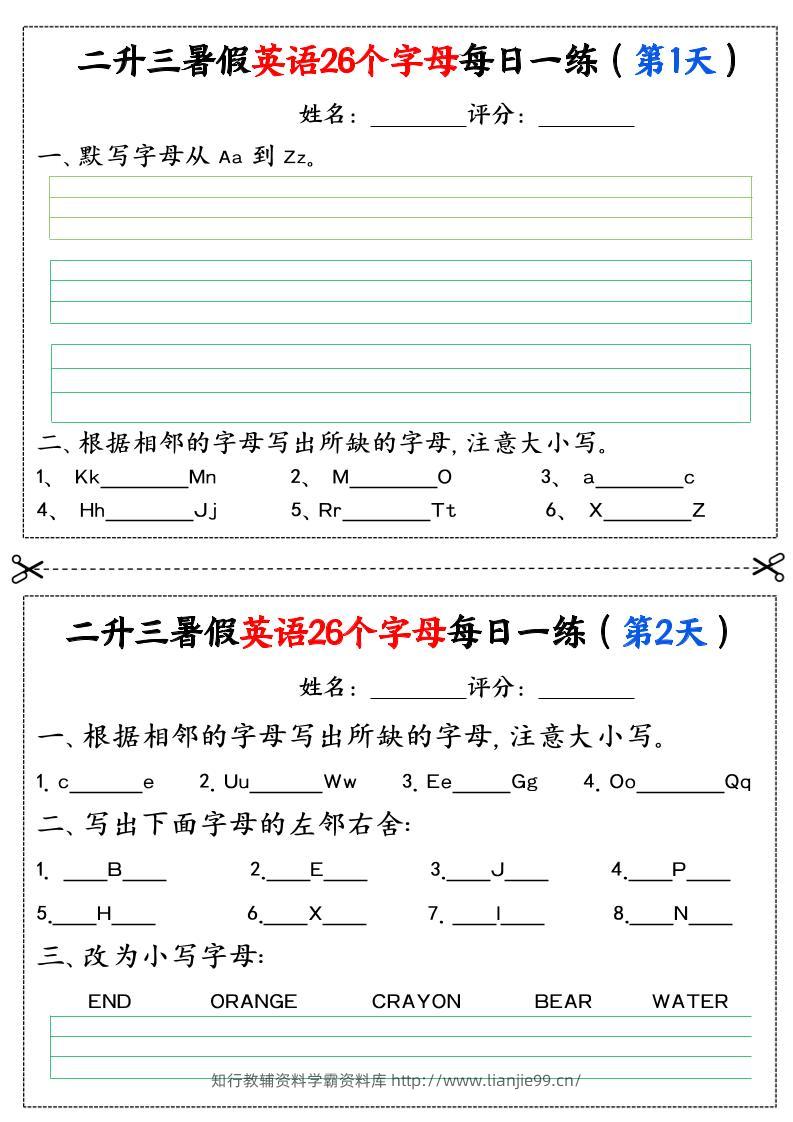 二升三暑假英语26个字母每日一练（第1天）
姓名：________评分：________
一、默写字母从 Aa 到 Zz。
二、根据相邻的字母写出所缺的字母，注意大小写。
1、 Kk________Mn 2、 M________O 3、 a________c
4、 Hh________Jj 5、Rr________Tt 6、 X________Z
二升三暑假英语26个字母每日一练（第2天）
姓名：________评分：________
一、根据相邻的字母写出所缺的字母，注意大小写。
1. c______e 2. Uu______Ww 3. Ee_____Gg 4. Oo________Qq
二、写出下面字母的左邻右舍：
1. ____B____ 2.____E____ 3.____J____ 4.____P____
5.____H____ 6.____X____ 7. ____I____ 8.____N____
三、改为小写字母：
END ORANGE CRAYON BEAR WATER
知行教辅资料学霸资料库 http://www.lianjie99.cn/